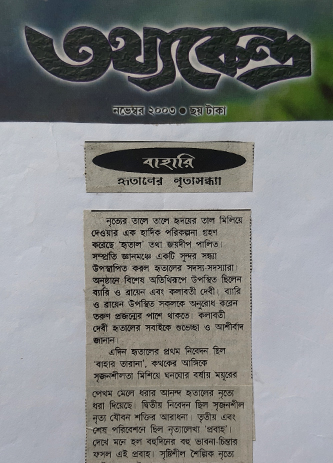 তথ্যকেন্দ্র
নভেম্বর ২০০৩ ● ছয় টাকা
বাহারি
হৃতালের নৃত্যসন্ধ্যা
নৃত্যের তালে তালে হৃদয়ের তাল মিলিয়ে
দেওয়ার এক হার্দিক পরিকল্পনা গ্রহণ
করেছে 'হৃতাল' তথা জয়দীপ পালিত।
সম্প্রতি জ্ঞানমঞ্চে একটি সুন্দর সন্ধ্যা
উপস্থাপিত করল হৃতালের সদস্য-সদস্যারা।
অনুষ্ঠানে বিশেষ অতিথিরূপে উপস্থিত ছিলেন
ব্যারি ও ব্রায়েন এবং কলাবতী দেবী। ব্যারি
ও ব্রায়েন উপস্থিত সকলকে অনুরোধ করেন
তরুণ প্রজন্মের পাশে থাকতে। কলাবতী
দেবী হৃতালের সবাইকে শুভেচ্ছা ও আশীর্বাদ
জানান।
এদিন হৃতালের প্রথম নিবেদন ছিল
'বাহার তারানা', কত্থকের আঙ্গিকে
সৃজনশীলতা মিশিয়ে ঘনঘোর বর্ষায় ময়ূরের
পেখম মেলে ধরার আনন্দ হৃতালের নৃত্যে
ধরা দিয়েছে। দ্বিতীয় নিবেদন ছিল সৃজনশীল
নৃত্য যৌবন শক্তির আরাধনা। তৃতীয় এবং
শেষ পরিবেশন ছিল নৃত্যালেখ্য 'প্রবাহ'।
দেখে মনে হল বহুদিনের বহু ভাবনা-চিন্তার
ফসল এই প্রবাহ। সৃষ্টিশীল শৈল্পিক নৃত্যে